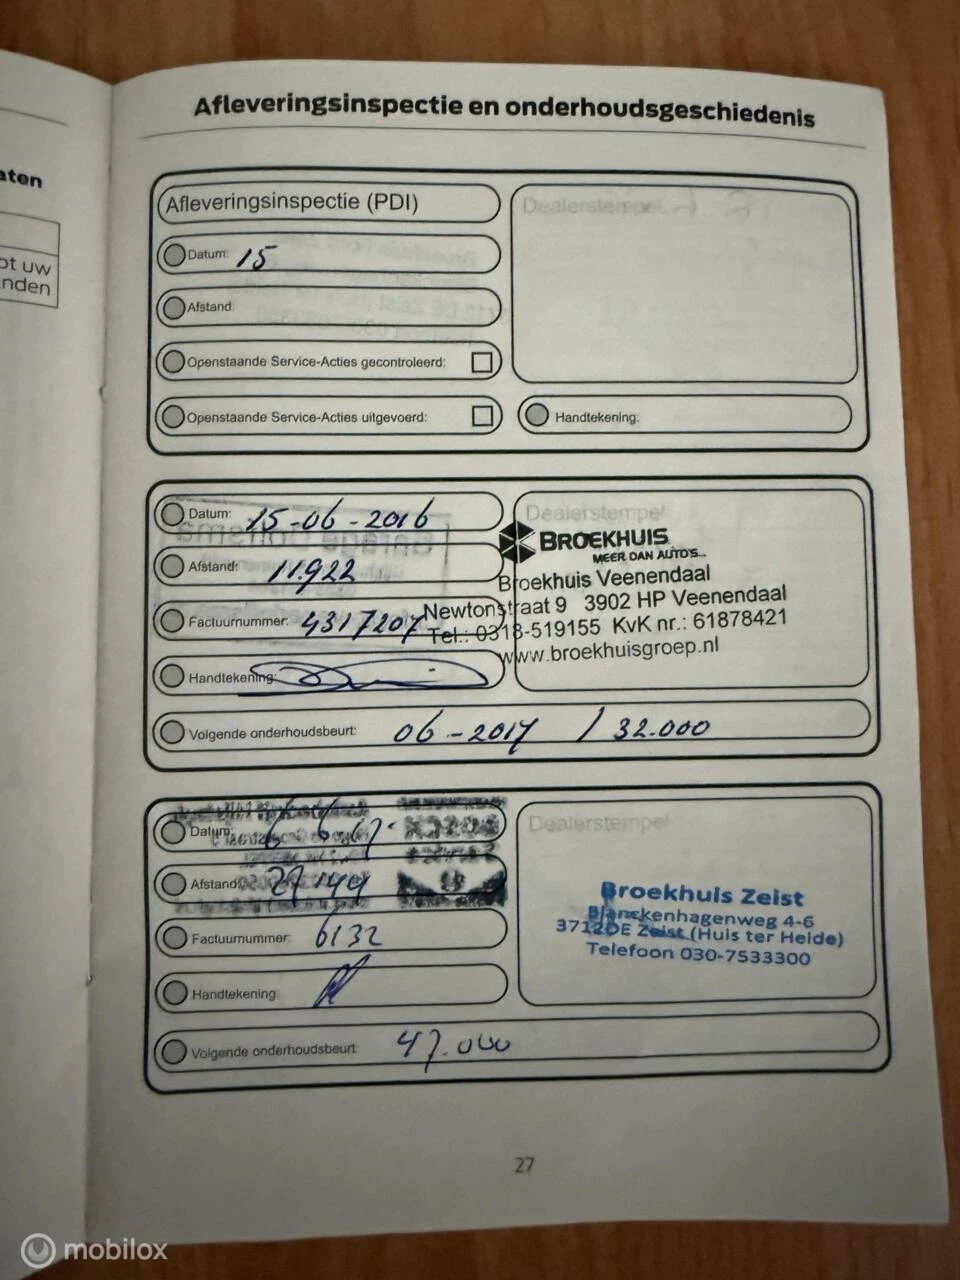 Afleveringsinspectie en onderhoudsgeschiedenis
aten
ot uw
nden
Afleveringsinspectie (PDI)
Dealerstempel
Datum: 15
Afstand:
Openstaande Service-Acties gecontroleerd:
Openstaande Service-Acties uitgevoerd:
Handtekening:
Datum: 15-06-2016
Dealerstempel
Afstand: 11.922
Factuurnummer: 4317207
Handtekening:
BROEKHUIS
MEER DAN AUTO'S...
Broekhuis Veenendaal
Newtonstraat 9 3902 HP Veenendaal
Tel.: 0318-519155 KvK nr.: 61878421
www.broekhuisgroep.nl
Volgende onderhoudsbeurt: 06-2017 / 32.000
Datum: 6 6 17
Dealerstempel
Afstand: 27.149
Factuurnummer: 6132
Handtekening:
Broekhuis Zeist
Blanckenhagenweg 4-6
3712DE Zeist (Huis ter Heide)
Telefoon 030-7533300
Volgende onderhoudsbeurt: 47.000
27
mobilox